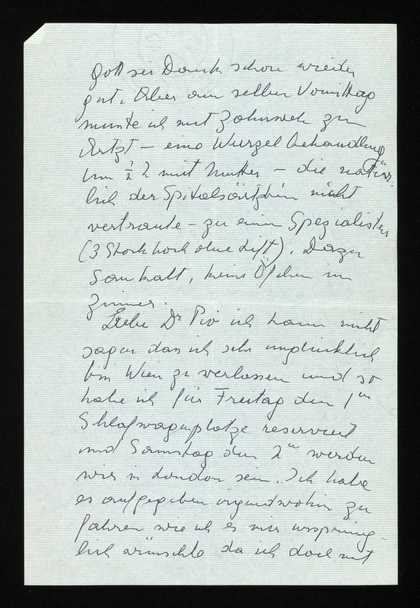 Gott sei Dank schon wieder
gut. Aber am selben Vormittag
musste ich mit Zahnweh zum
Artzt – eine Wurzel behandlung
um ½ 2 mit Mutter – die natür-
lich der Spitalsärztin nicht
vertraute – zu einem Spezialisten
(3 Stock hoch ohne Lift). Dazu
Saukalt, kein Öfchen im
Zimmer.
Liebe Dr Pio ich kann nicht
sagen das ich sehr unglücklich
bin Wien zu verlassen und so
habe ich für Freitag den 1ten
Schlafwagenplätze reserviert
und Samstag den 2ten werden
wir in London sein. Ich habe
es aufgegeben irgendwohin zu
fahren wie ich es mir ursprüng-
lich wünschte da ich doch mit